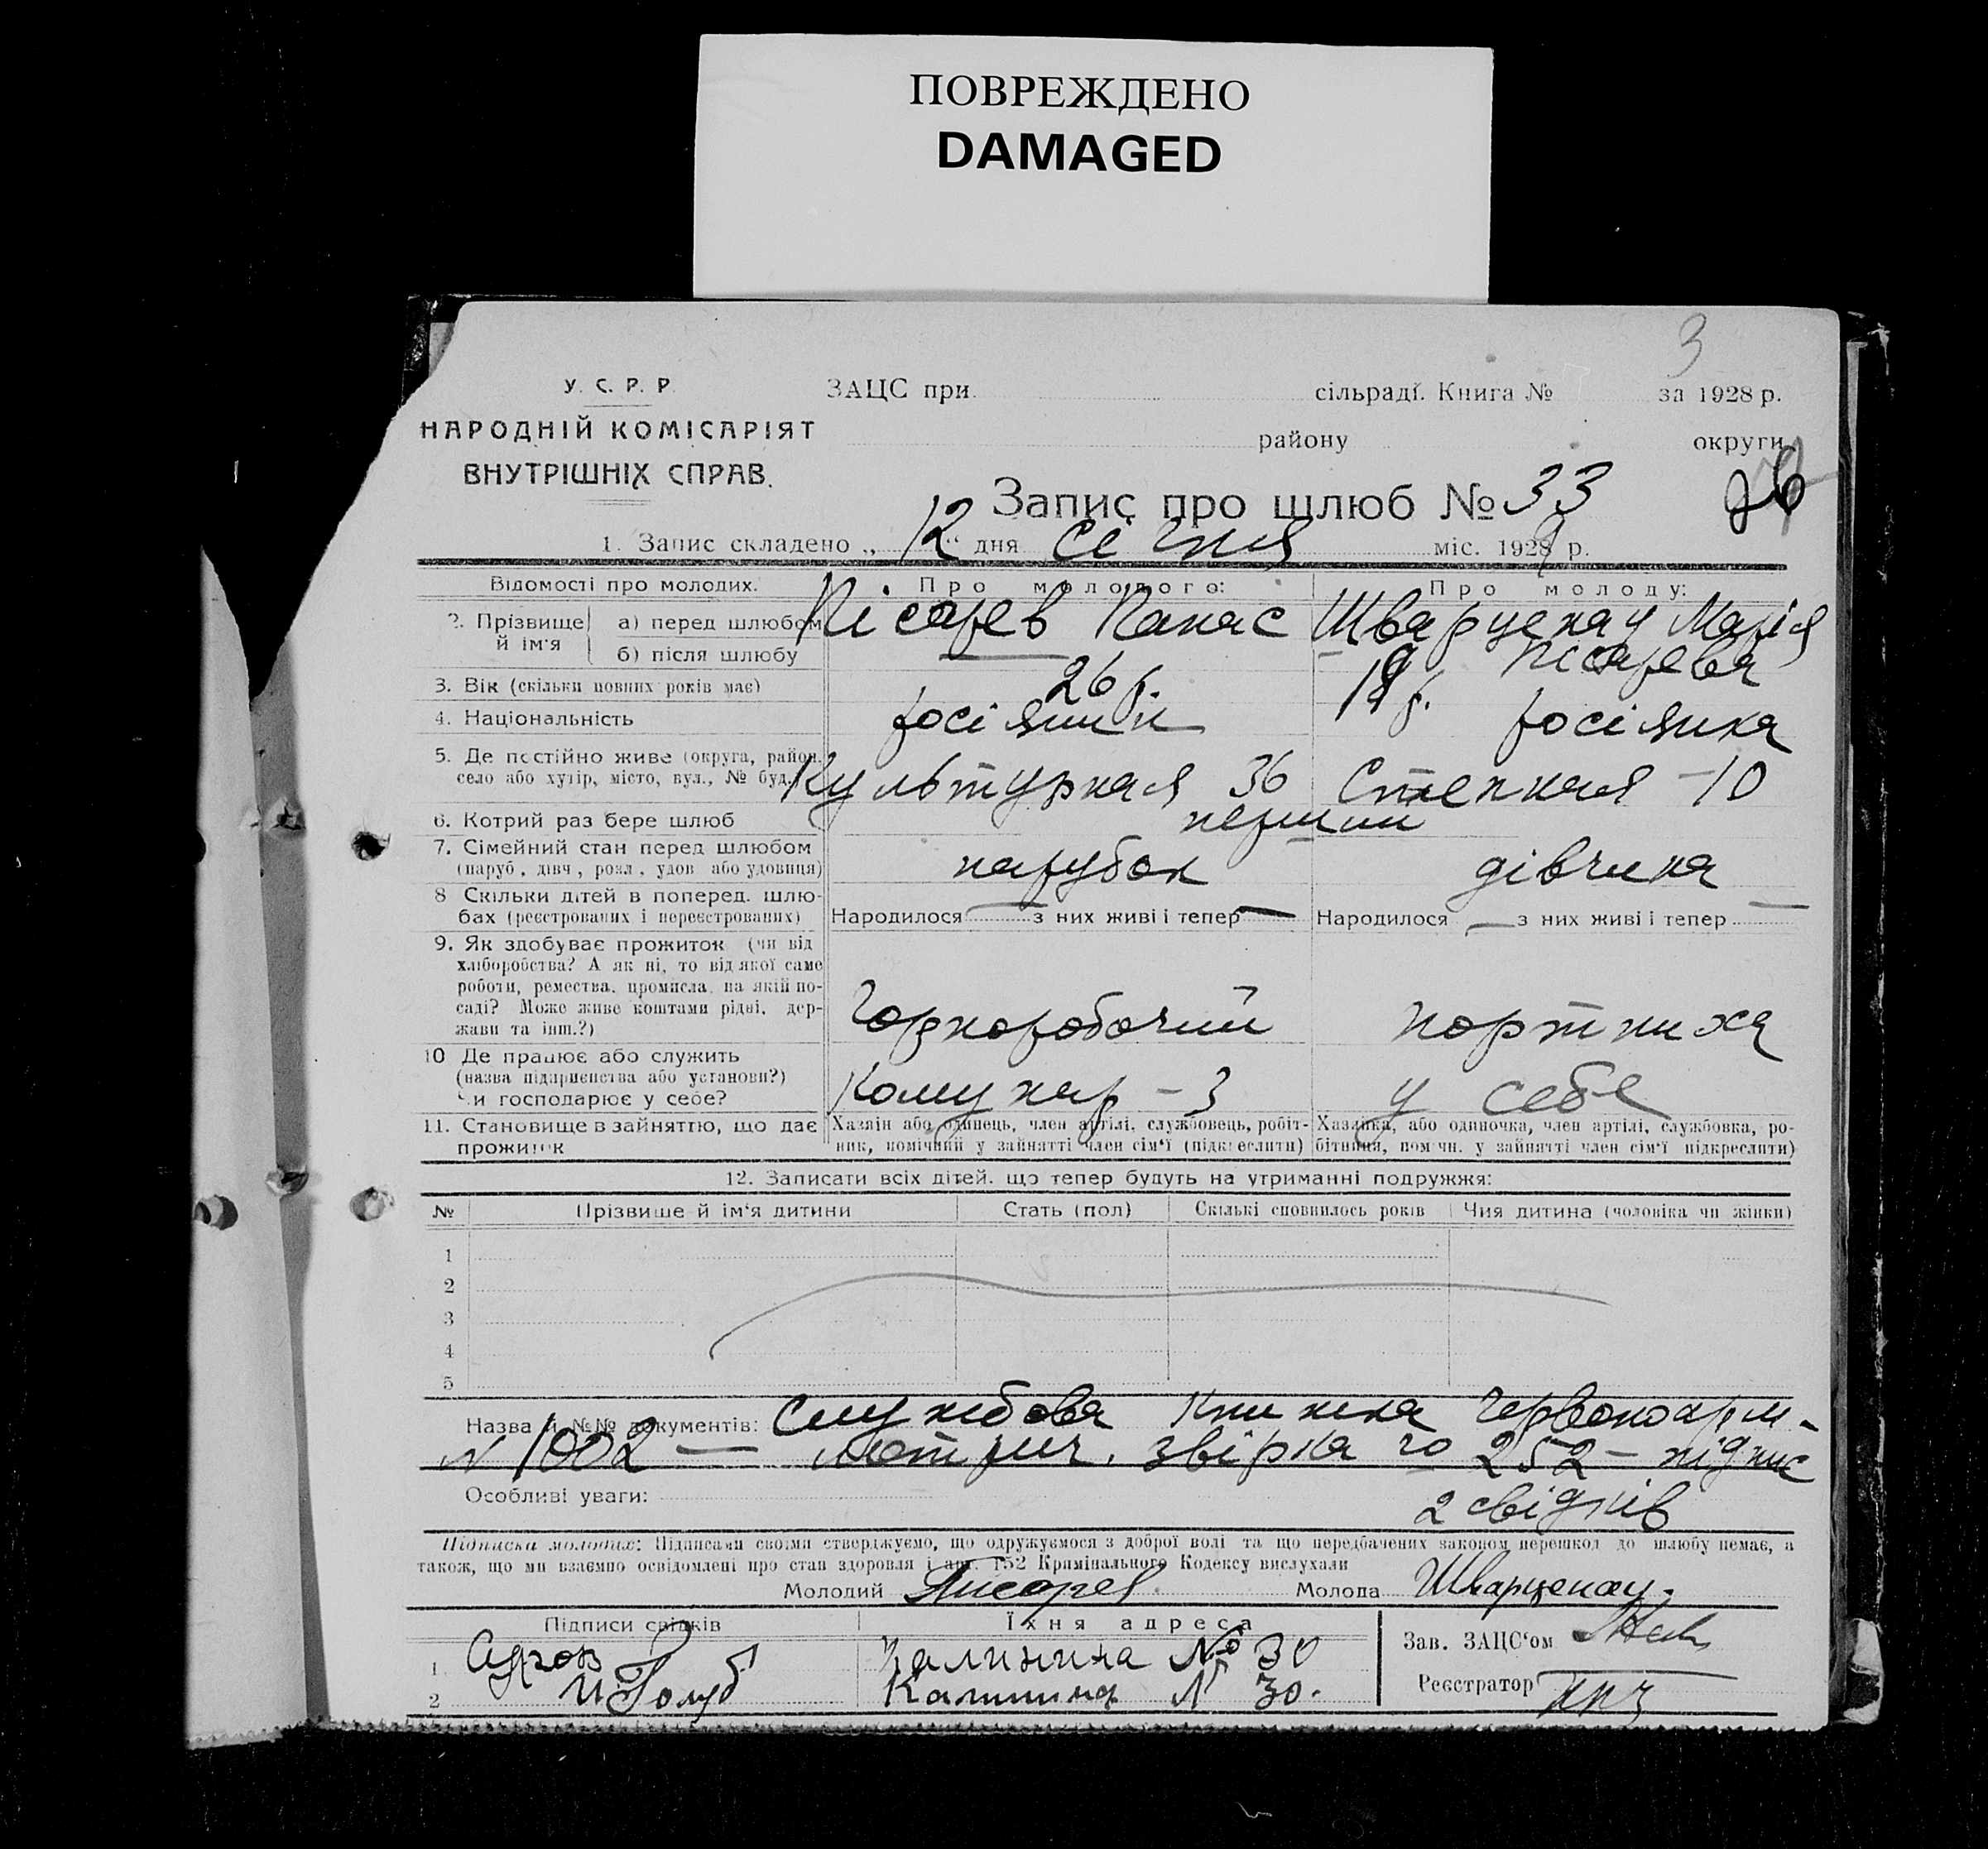 ПОВРЕЖДЕНО
DAMAGED
3
У. С. Р. Р.
НАРОДНІЙ КОМІСАРІЯТ
ВНУТРІШНІХ СПРАВ.
ЗАЦС при сільраді. Книга № за 1928 р.
району округи
Запис про шлюб № 33 26
1. Запис складено „ 12 “ дня січня міс. 1929 р.
Відомості про молодих. Про молодого: Про молоду:
2. Прізвище й ім'я
а) перед шлюбом Пісарев Панас Шварценау Марія
б) після шлюбу — Пісарева
3. Вік (скільки повних років має) 26 р. 19 р.
4. Національність росіянин росіянка
5. Де постійно живе (округа, район,
село або хутір, місто, вул., № буд.) Культурная 36 Степная - 10
6. Котрий раз бере шлюб перший
7. Сімейний стан перед шлюбом
(паруб., дівч., розл., удов. або удовиця) парубок дівчина
8 Скільки дітей в поперед. шлю-
бах (реєстрованих і нереєстрованих) Народилося — з них живі і тепер — Народилося — з них живі і тепер —
9. Як здобуває прожиток (чи від
хліборобства? А як ні, то від якої саме
роботи, ремества, промисла, на якій по-
саді? Може живе коштами рідні, дер-
жави та інш.?) Горноробочий портниха
10 Де працює або служить
(назва підприємства або установи?)
Чи господарює у себе? Комунар - 3 у себе
11. Становище в зайняттю, що дає
прожиток
Хазяїн або одинець, член артілі, службовець, робіт-
ник, помічний у зайнятті член сім'ї (підкреслити)
Хазяйка, або одиночка, член артілі, службовка, ро-
бітниця, помічн. у зайнятті член сім'ї підкреслити)
12. Записати всіх дітей, що тепер будуть на утриманні подружжя:
№ Прізвише й ім'я дитини Стать (пол) Скількі сповнилось років Чия дитина (чоловіка чи жінки)
1
2
3
4
5
Назва й №№ документів: Службова книжка червоноарм-
N 1002 — метрич. звірка 252 - підпис
Особливі уваги: 2 свідків
Підписка молодих: Підписами своїми стверджуємо, що одружуємося з доброї волі та що передбачених законом перешкод до шлюбу немає, а
також, що ми взаємно освідомлені про стан здоровля і арт. 152 Крамінального Кодексу вислухали
Молодий Писарев Молода Шварценау.
Підписи свідків Їхня адреса
1. Калинина № 30
2 И Голуб Калинина N 30.
Зав. ЗАЦС'ом
Реєстратор